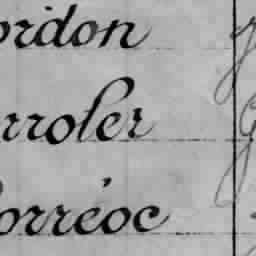 ordon
rroler
orréoc